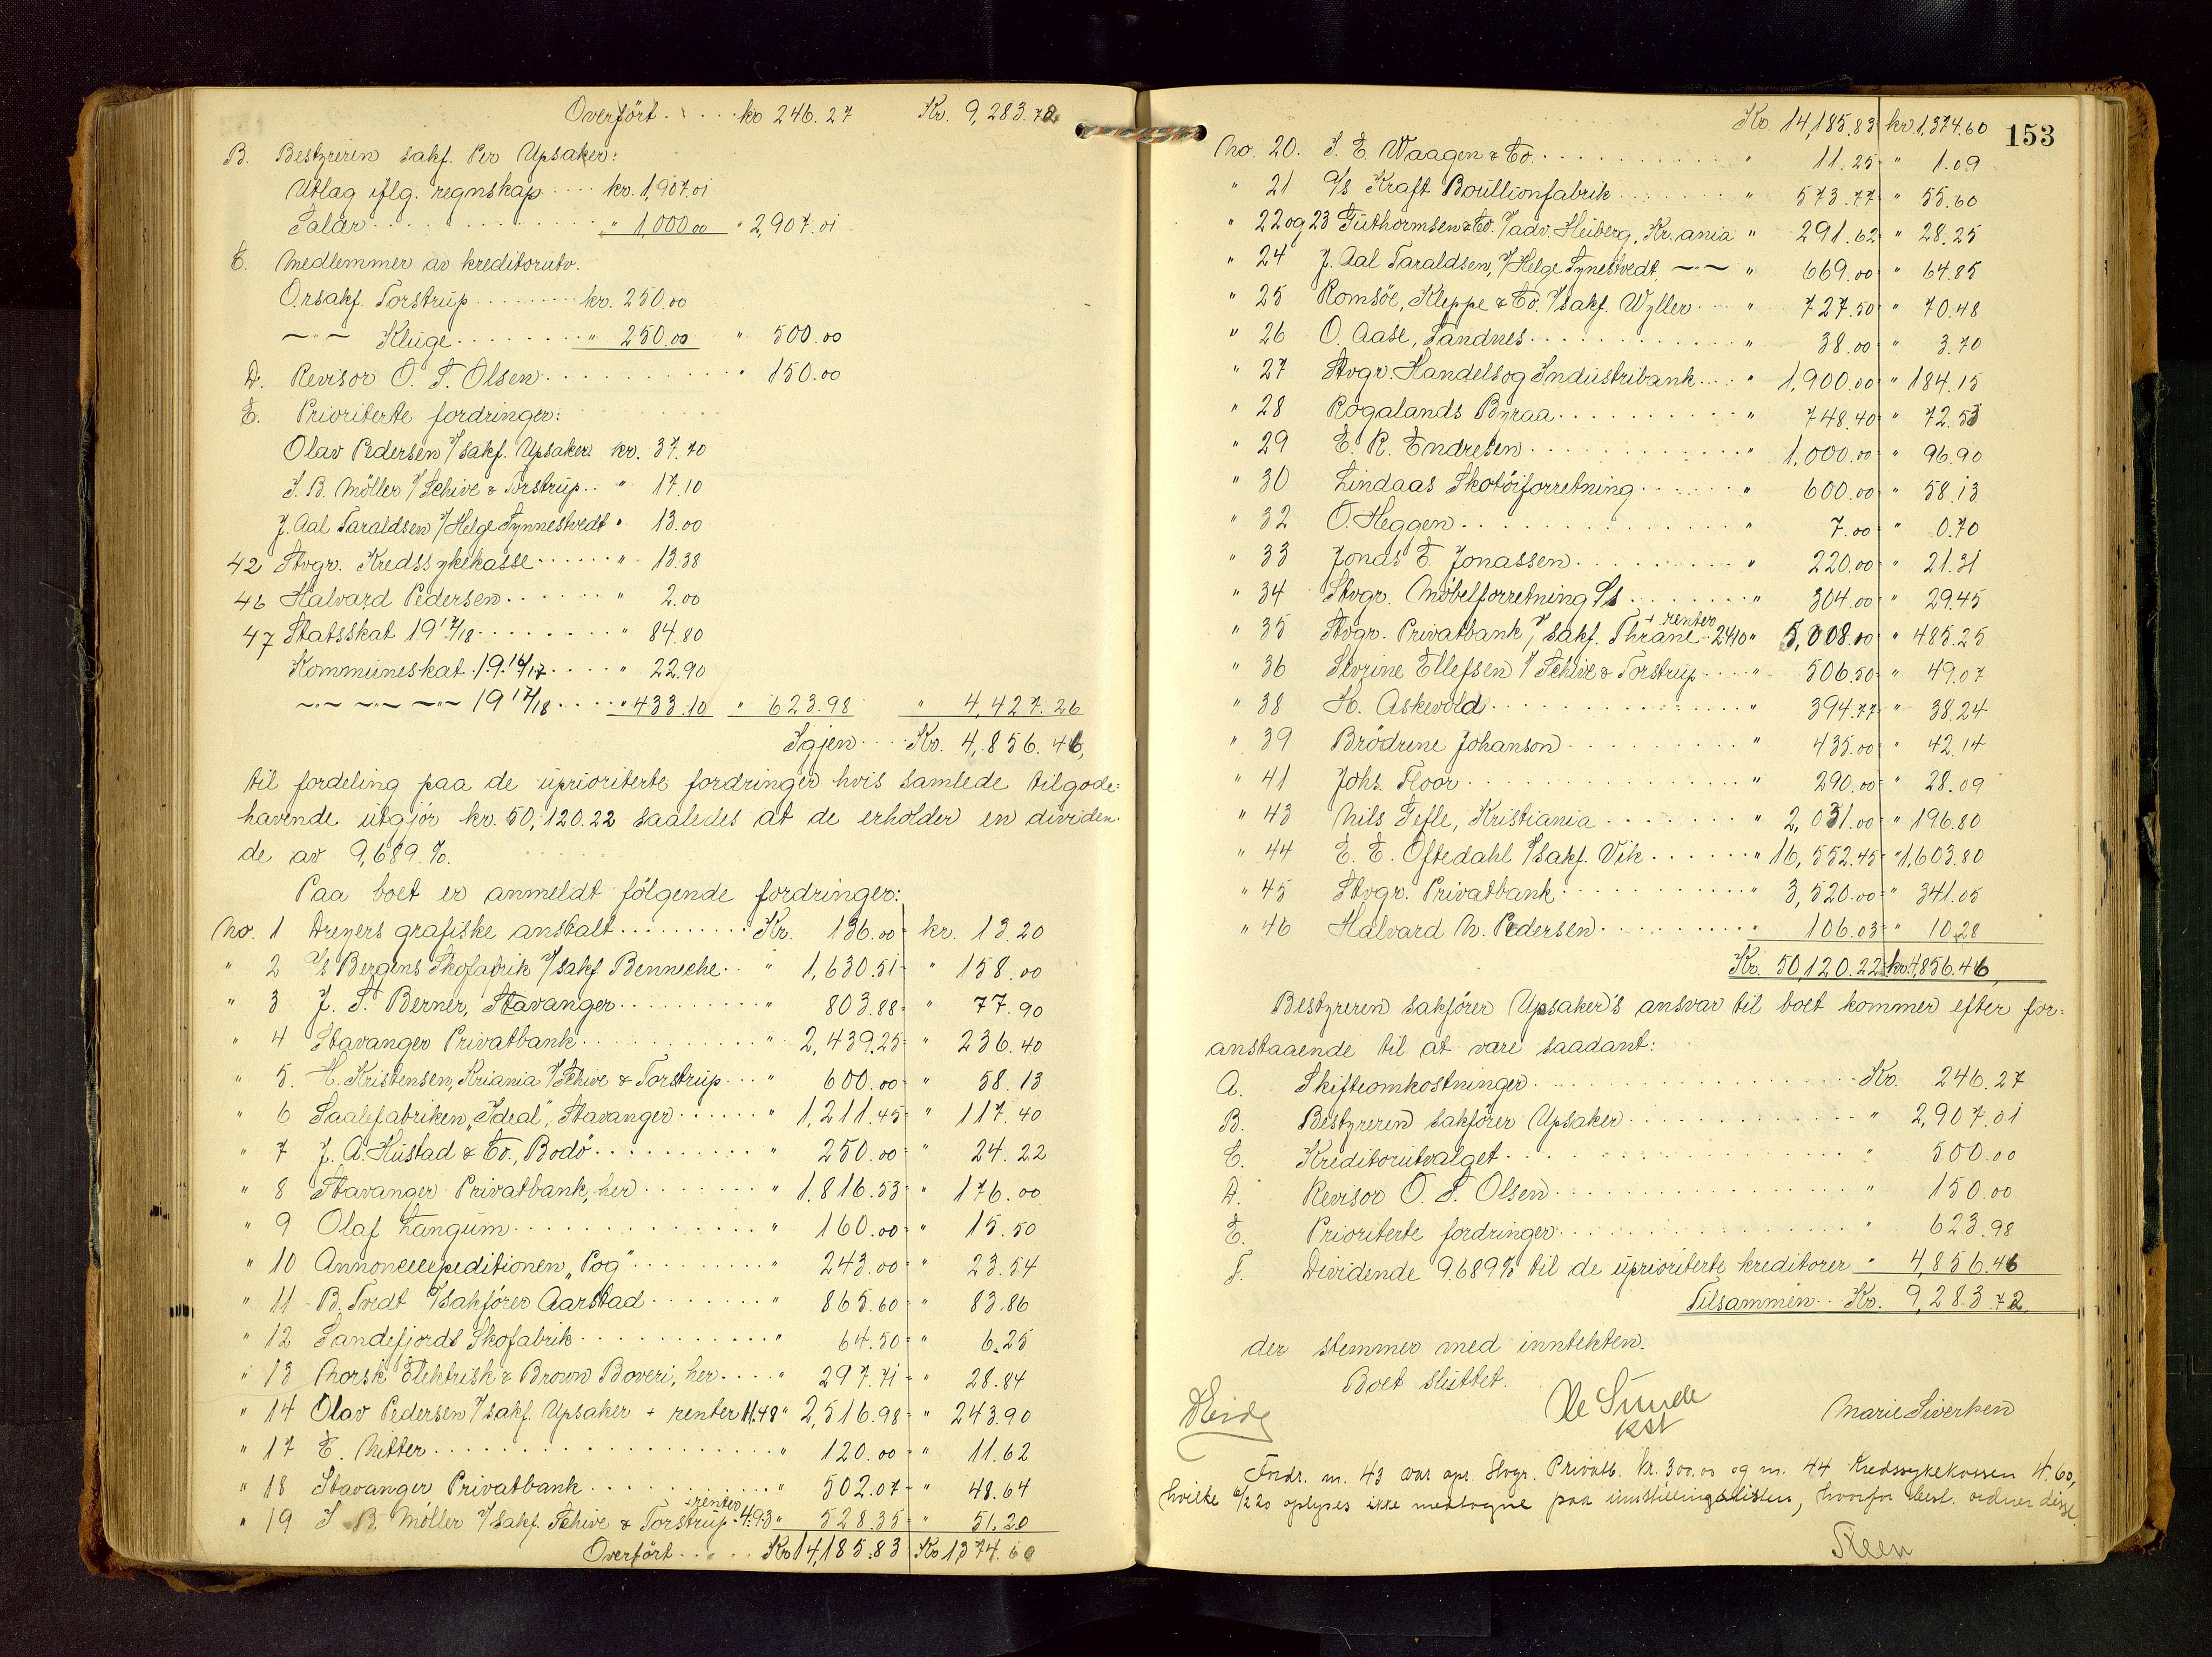 Overført . . . . . kr 246.27 Kr. 9,283.72
B. Bestyreren sakf. Per Upsaker:
Utlæg iflg. regnskap . . . . kr. 1,907.01
Salær . . . . . . . . . . . . . " 1,000.00 " 2,907.01
C. Medlemmer av kreditorutv.
O.rsakf. Torstrup . . . . . . . . kr. 250.00
—"— Kluge . . . . . . . . " 250.00 " 500.00
D. Revisor O. T. Olsen . . . . . . . . . . . " 150.00
E. Prioriterte fordringer:
Olav Pedersen v/ sakf. Upsaker kr. 37.70
S. B. Möller v/ Schive & Torstrup . . " 17.10
J. Aal Taraldsen v/ Helge Tynnestvedt " 13.00
42 Stvgr. Kredssykekasse . . . . . . " 13.38
46 Halvard Pedersen . . . . . . " 2.00
47 Statsskat 1917/18 . . . . . . . . " 84.80
Kommuneskat 1916/17 . . . . . " 22.90
—"— —"— —"— 1917/18 . . . . " 433.10 " 623.98 " 4,427.26
Igjen . . . . Kr. 4,856.46,
til fordeling paa de uprioriterte fordringer hvis samlede tilgode-
havende utgjör kr. 50,120.22 saaledes at de erholder en dividen-
de av 9,689 %.
Paa boet er anmeldt følgende fordringer:
No. 1 Dreyers grafiske anstalt . . . . . . . . . Kr. 136.00 kr. 13.20
" 2 A/s Bergens Skofabrik v/ sakf Benneche . . " 1,630.51 " 158.00
" 3 J. S. Berner, Stavanger . . . . . . . . . . " 803.88 " 77.90
" 4 Stavanger Privatbank . . . . . . . . . . . . " 2,439.25 " 236.40
" 5. H. Kristensen, Kriania v/ Schive & Torstrup . . . " 600.00 " 58.13
" 6 Saalefabriken "Ideal", Stavanger . . . . . . " 1,211.45 " 117.40
" 7 J. A. Hustad & Co., Bodö . . . . . . . . . . " 250.00 " 24.22
" 8 Stavanger Privatbank, her . . . . . . . " 1,816.53 " 176.00
" 9 Olaf Langum . . . . . . . . . . . . . . " 160.00 " 15.50
" 10 Annonceexpeditionen "Pog" . . . . . . . . . . " 243.00 " 23.54
" 11 B. Tvedt v/ sakförer Aarstad . . . . . . . " 865.60 " 83.86
" 12 Sandefjords Skofabrik . . . . . . . . . . . . " 64.50 " 6.25
" 13 Norsk Elektrisk & Brown Boveri, her . . . . " 297.71 " 28.84
" 14 Olav Pedersen v/ sakf. Upsaker + renter 11.48 " 2,516.98 " 243.90
" 17 E. Nitter . . . . . . . . . . . . . . . . . . " 120.00 " 11.62
" 18 Stavanger Privatbank . . . . . . . . . . . . " 502.07 " 48.64
" 19 S. B. Möller v/ sakf. Schive & Torstrup + renter 4.93 " 528.35 " 51.20
Overført . . . . . Kr 14,185.83 Kr 1,374.60
Kr. 14,185.83 kr 1,374.60 153
No. 20. S. E. Waagen & Co. . . . . . . . . . . . " 11.25 " 1.09
" 21 A/s Kraft Boullionfabrik . . . . . . . . " 573.77 " 55.60
" 22 og 23 Guthormsen & Co. v/ adv. Heiberg, Kr.ania " 291.62 " 28.25
" 24 J. Aal Taraldsen, v/ Helge Tynestvedt —"— " 669.00 " 64.85
" 25 Romsöe, Kleppe & Co. v/ sakf. Wyller . . . " 727.50 " 70.48
" 26 O. Aase, Sandnes . . . . . . . . . . . . " 38.00 " 3.70
" 27 Stvgr. Handels og Industribank . . . " 1,900.00 " 184.15
" 28 Rogalands Byraa . . . . . . . . . . . " 748.40 " 72.53
" 29 E. R. Endresen . . . . . . . . . . . . " 1,000.00 " 96.90
" 30 Lindaas Skotöiforretning . . . . . . . " 600.00 " 58.13
" 32 O. Heggen . . . . . . . . . . . . . . . " 7.00 " 0.70
" 33 Jonas E. Jonassen . . . . . . . . . . " 220.00 " 21.31
" 34 Stvgr. Möbelforretning A/s . . . . . . . " 304.00 " 29.45
" 35 Stvgr. Privatbank, v/ sakf. Thrane + renter 24.10 " 5,008.00 " 485.25
" 36 Sivrine Ellefsen v/ Schive & Torstrup . . . . " 506.50 " 49.07
" 38 H. Askevold . . . . . . . . . . . . . . . " 394.77 " 38.24
" 39 Brödrene Johanson . . . . . . . . . . " 435.00 " 42.14
" 41 Johs. Floor . . . . . . . . . . . . . . . . " 290.00 " 28.09
" 43 Nils Tefle, Kristiania . . . . . . . . " 2,031.00 " 196.80
" 44 E. E. Oftedahl v/ sakf. Vik . . . . . . " 16,552.45 " 1,603.80
" 45 Stvgr. Privatbank . . . . . . . . . . . " 3,520.00 " 341.05
" 46 Halvard N. Pedersen . . . . . . . . . " 106.03 " 10.28
Kr. 50,120.22 kr. 4,856.46,
Bestyreren sakförer Upsaker's ansvar til boet kommer efter for-
anstaaende til at være saadant:
A. Skifteomkostninger . . . . . . . . . . . . . . . . . . . Kr. 246.27
B. Bestyreren sakförer Upsaker . . . . . . . . . . . . . " 2,907.01
C. Kreditorutvalget . . . . . . . . . . . . . . . . . . . " 500.00
D. Revisor O. T. Olsen . . . . . . . . . . . . . . . . " 150.00
E. Prioriterte fordringer . . . . . . . . . . . . . . . " 623.98
F. Dividende 9.689 % til de uprioriterte kreditorer " 4,856.46
Tilsammen . . . Kr. 9,283.72
der stemmer med inntekten.
Boet sluttet.
Sunde Marie Siverken
kst
Fordr. nr. 43 var opr. Stvgr. Privatb. kr. 300.00 og nr. 44 Kredssykekassen 4.60,
hvilke 6/2 20 oplyses ikke medtagne paa innstillingslisten, hvorfor best. ordner disse.
Steen